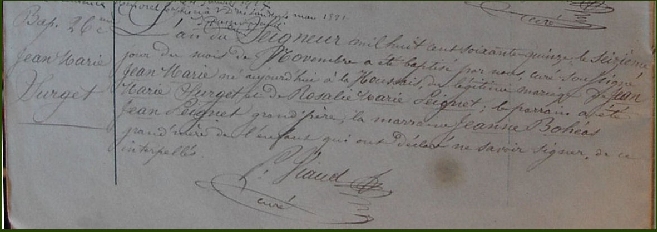 mai 1921.
curé
Bap. 26e
Jean Marie
Vurget
L'an du Seigneur mil huit cent soixante quinze, le seizième
jour du mois de Novembre a été baptisé par nous, curé soussigné
Jean Marie né aujourd'hui à du légitime mariage de Jean
Marie Vurget et de Rosalie Marie Peignet; le parrain a été
Jean Peignet grand'père, la marraine Jeanne Bohéas
grand'mère de l'enfant qui ont déclaré ne savoir signer, de ce
interpellés.
Piaud
curé